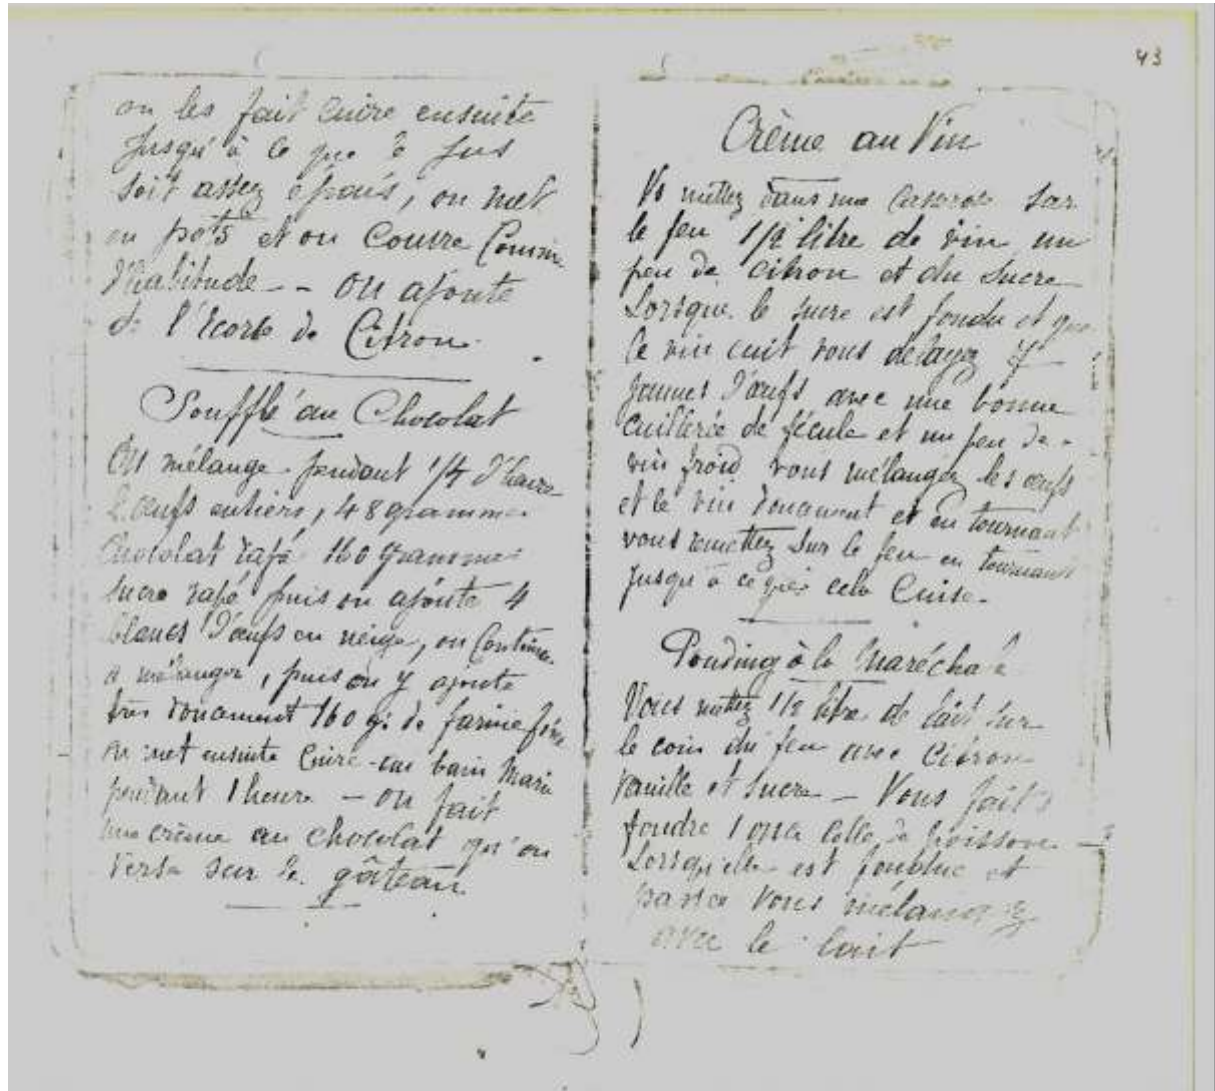 on les fait cuire ensuite
jusqu'à ce que le jus
soit assez épais, on met
en pots et on couvre comme
d'habitude -- on ajoute
de l'écorce de Citron.
Soufflé au Chocolat
On mélange pendant 1/4 d'heure
2 œufs entiers, 48 grammes
Chocolat rapé 160 grammes
sucre rapé puis on ajoute 4
blancs d'œufs en neige, on continue
a mélanger, puis on y ajoute
très doucement 160 g. de farine fine
on met ensuite cuire au bain Marie
pendant 1 heure - on fait
une crème au chocolat qu'on
verse sur le gâteau
43
Crème au Vin
Vs mettez dans une casserole sur
le feu 1/2 litre de vin un
peu de citron et du sucre
Lorsque le sucre est fondu et que
le vin cuit vous delayez 7
jaunes d'œufs avec une bonne
cuillerée de fécule et un peu de
vin froid vous mélangez les œufs
et le vin doucement et en tournant
vous remettez sur le feu en tournant
jusqu'à ce que cela cuise.
Pouding à la Maréchale
Vous mettez 1/2 litre de lait sur
le coin du feu avec citron
vanille et sucre - Vous faites
fondre 1 once colle de poisson
Lorsqu'elle est fondue et
passée vous mélangez
avec le lait